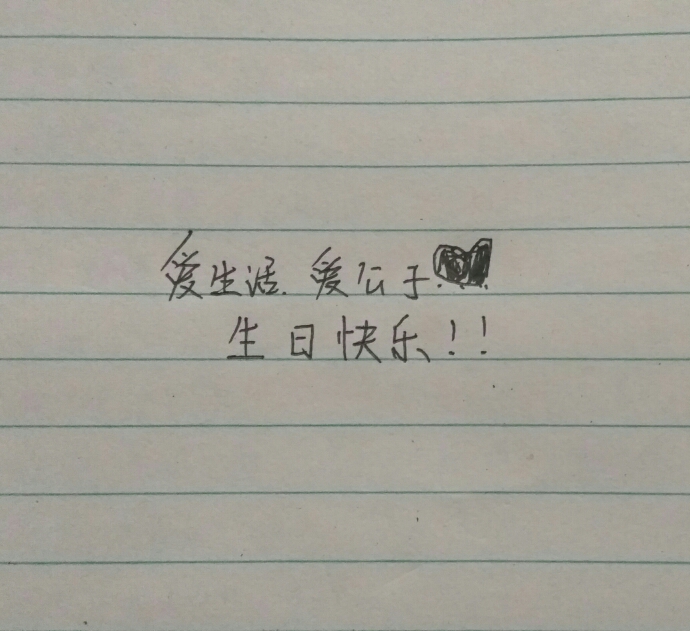 爱生活.爱公子
生日快乐!!